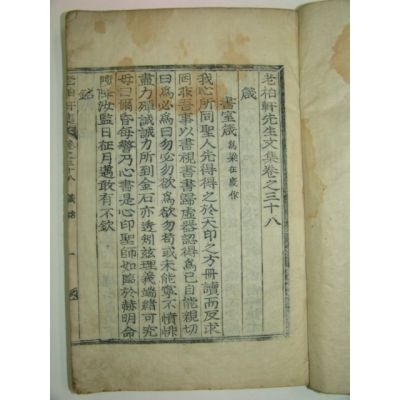 老柏軒先生文集卷之三十八
箴
書室箴 爲梁在慶作
我心所同聖人先得得之於天印之方冊讀而反求
固我吾事以書視書書歸虛器認得爲己自能親切
曰爲必爲曰勿必勿欲爲勿勿苟或未能寧不憤悱
盡力殫誠誠力所到金石亦透矧玆理義端緖可究
毋曰爾昏每警乃心書是心印聖師如臨於赫明命
陟降汝監日征月邁敢有不欽
銘
老柏軒集 卷之三十八 箴銘 一